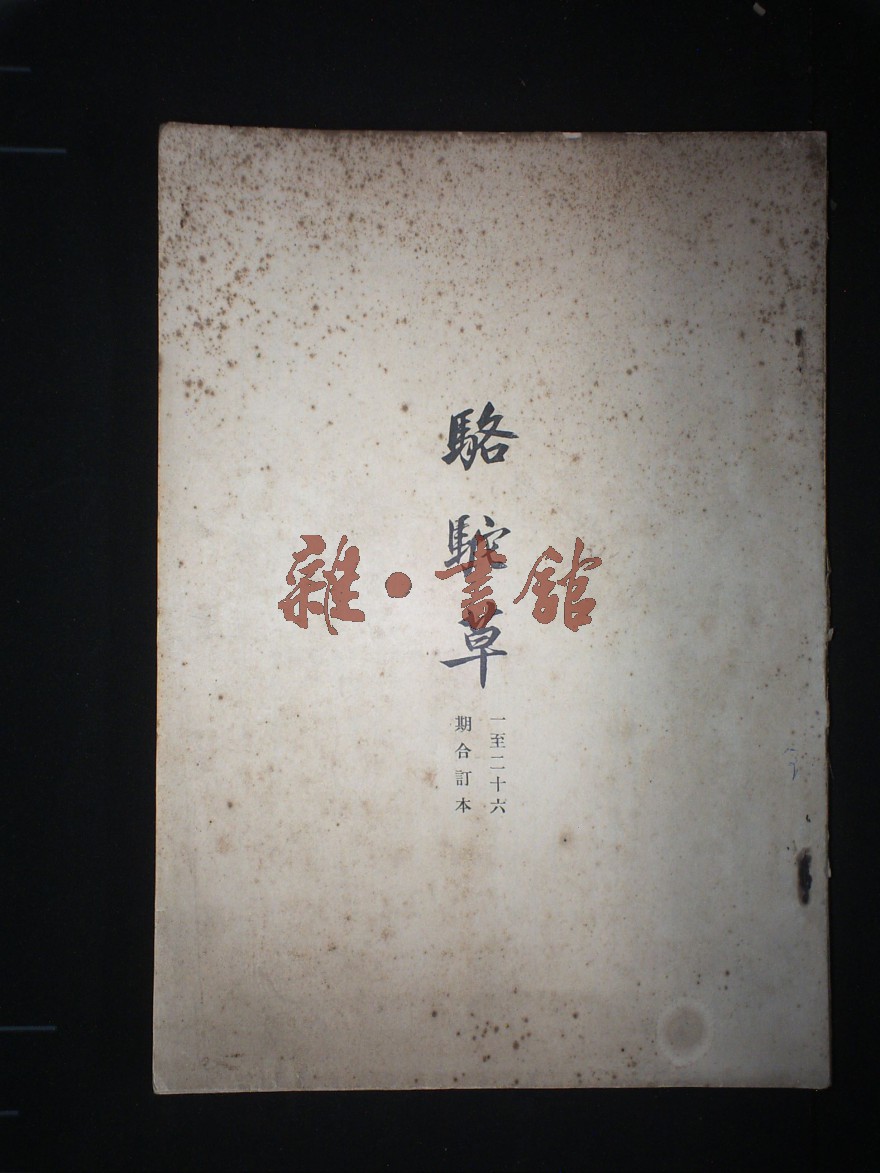 駱駝草
一至二十六
期合訂本
雜·書館